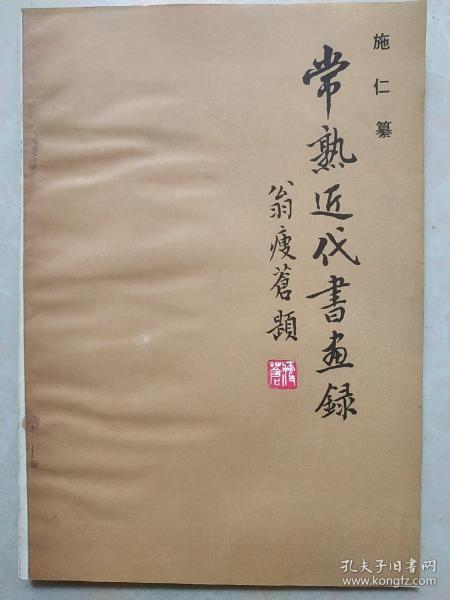 施仁纂
常熟近代書画録
翁瘦蒼題
瘦蒼
孔夫子旧书网
www.kongfz.com